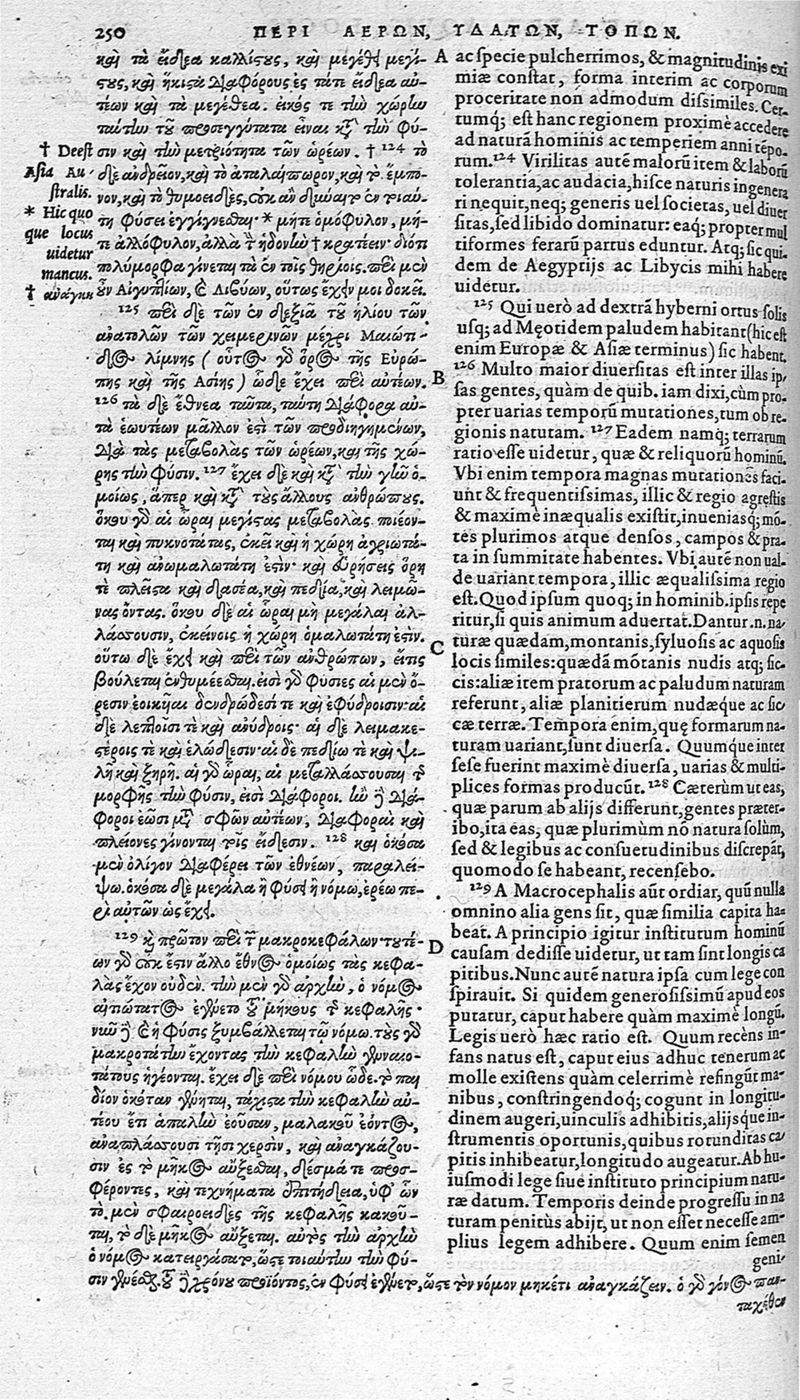 250 ΠΕΡΙ ΑΕΡΩΝ, ΥΔΑΤΩΝ, ΤΟΠΩΝ.
καὶ τὰ εἴδεα καλλίστους, καὶ μεγέθει μεγί-
στους, καὶ ἥκιστα διαφόρους ἐς τάτε εἴδεα αὐ-
τέων καὶ τὰ μεγέθεα. εἰκός τε τὴν χώρην
ταύτην τοῦ προσεγγύτατα εἶναι κατὰ τὴν φύ-
σιν καὶ τὴν μετριότητα τῶν ὡρέων. † 124 τὸ
δὲ ἀνδρεῖον, καὶ τὸ ἀταλαίπωρον, καὶ τὸ ἔμπο-
νον, καὶ τὸ θυμοειδὲς, οὐκ ἂν δύναιτο ἐν τοιαύ-
τῃ φύσει ἐγγίγνεσθαι * μήτε ὁμόφυλον, μή-
τε ἀλλόφυλον, ἀλλὰ τὴν ἡδονὴν † κρατέειν· διότι
πολύμορφα γίνεται τὰ ἐν τοῖς θηρίοις. περὶ μὲν
οὖν Αἰγυπτίων, καὶ Λιβύων, οὕτως ἔχειν μοι δοκεῖ.
125 περὶ δὲ τῶν ἐν δεξιᾷ τοῦ ἡλίου τῶν
ἀνατολῶν τῶν χειμερινῶν μέχρι Μαιώτι-
δος λίμνης (οὗτος γὰρ ὅρος τῆς Εὐρώ-
πης καὶ τῆς Ἀσίης) ὧδε ἔχει περὶ αὐτέων.
126 τὰ δὲ ἔθνεα ταῦτα, ταύτῃ διάφορα αὐ-
τὰ ἑωυτέων μᾶλλον ἐστὶ τῶν προδιηγημένων,
διὰ τὰς μεταβολὰς τῶν ὡρέων, καὶ τῆς χώ-
ρης τὴν φύσιν. 127 ἔχει δὲ καὶ κατὰ τὴν γῆν ὁ-
μοίως, ἅπερ καὶ κατὰ τοὺς ἄλλους ἀνθρώπους.
ὅκου γὰρ αἱ ὧραι μεγίστας μεταβολὰς ποιέον-
ται καὶ πυκνοτάτας, ἐκεῖ καὶ ἡ χώρη ἀγριωτά-
τη καὶ ἀνωμαλωτάτη ἐστίν· καὶ εὑρήσεις ὄρη
τε πλεῖστα καὶ δασέα, καὶ πεδία, καὶ λειμῶ-
νας ὄντας. ὅκου δὲ αἱ ὧραι μὴ μεγάλαι ἀλ-
λάσσουσιν, ἐκείνοις ἡ χώρη ὁμαλωτάτη ἐστίν.
οὕτω δὲ ἔχει καὶ περὶ τῶν ἀνθρώπων, εἴτις
βούλεται ἐνθυμέεσθαι. εἰσὶ γὰρ φύσιες αἱ μὲν ὄ-
ρεσιν ἐοικυῖαι δενδρώδεσί τε καὶ ἐφύδροισιν· αἱ
δὲ λεπτοῖσί τε καὶ ἀνύδροις· αἱ δὲ λειμακε-
στέροις τε καὶ ἑλώδεσιν· αἱ δὲ πεδίῳ τε καὶ ψι-
λῇ καὶ ξηρῇ. αἱ γὰρ ὧραι, αἱ μεταλλάσσουσαι τῆς
μορφῆς τὴν φύσιν, εἰσὶ διάφοροι. ἢν δὲ διά-
φοροι ἔωσι μετὰ σφῶν αὐτέων, διαφοραὶ καὶ
πλείονες γίνονται τοῖς εἴδεσιν. 128 καὶ ὁκόσα
μὲν ὀλίγον διαφέρει τῶν ἐθνέων, παραλεί-
ψω. ὁκόσα δὲ μεγάλα ἢ φύσει ἢ νόμῳ, ἐρέω πε-
ρὶ αὐτῶν ὡς ἔχει.
129 καὶ πρῶτον περὶ τῶν μακροκεφάλων· τουτέ-
ων γὰρ οὐκ ἔστιν ἄλλο ἔθνος ὁμοίως τὰς κεφα-
λὰς ἔχον οὐδέν. τὴν μὲν γὰρ ἀρχὴν, ὁ νόμος
αἰτιώτατος ἐγένετο τοῦ μήκους τῆς κεφαλῆς·
νῦν δὲ καὶ ἡ φύσις ξυμβάλλεται τῷ νόμῳ. τοὺς γὰρ
μακροτάτην ἔχοντας τὴν κεφαλὴν γενναιο-
τάτους ἡγέονται. ἔχει δὲ περὶ νόμου ὧδε. τὸ παι
δίον ὁκόταν γένηται, τάχιστα τὴν κεφαλὴν αὐ-
τέου ἔτι ἁπαλὴν ἐοῦσαν, μαλακοῦ ἐόντος,
ἀναπλάσσουσι τῇσι χερσὶν, καὶ ἀναγκάζου-
σιν ἐς τὸ μῆκος αὔξεσθαι, δέσμάτε προσ-
φέροντες, καὶ τεχνήματα ἐπιτήδεια, ὑφ' ὧν
τὸ μὲν σφαιροειδὲς τῆς κεφαλῆς κακοῦ-
ται, τὸ δὲ μῆκος αὔξεται. αὕτως τὴν ἀρχὴν
ὁ νόμος κατειργάσατο, ὥστε τοιαύτην τὴν φύ-
σιν γενέσθαι. τοῦ δὲ χρόνου προϊόντος, ἐν φύσει ἐγένετο, ὥστε τὸν νόμον μηκέτι ἀναγκάζειν. ὁ γὰρ γόνος παν-
ταχόθεν
† Deest
Asia Au-
stralis.
* Hic quo
que locus
uidetur
mancus.
† ἀνάγκη
A ac specie pulcherrimos, & magnitudinis exi
miæ constat, forma interim ac corporum
proceritate non admodum dissimiles. Cer-
tumq; est hanc regionem proximè accedere
ad naturã hominis ac temperiem anni tẽpo-
rum. 124 Virilitas autẽ malorũ item & laborũ
tolerantia, ac audacia, hisce naturis ingenera
ri nequit, neq; generis uel societas, uel diuer
sitas, sed libido dominatur: eaq; propter mul
tiformes ferarũ partus eduntur. Atq; sic qui-
dem de Aegyptijs ac Libycis mihi habere
uidetur.
125 Qui uerò ad dextrã hyberni ortus solis
usq; ad Męotidem paludem habitant (hic est
enim Europæ & Asiæ terminus) sic habent.
B 126 Multo maior diuersitas est inter illas ip-
sas gentes, quàm de quib. iam dixi, cùm pro-
pter uarias temporũ mutationes, tum ob re-
gionis natutam. 127 Eadem namq; terrarum
ratio esse uidetur, quæ & reliquorũ hominũ.
Vbi enim tempora magnas mutationes faci-
unt & frequentissimas, illic & regio agrestis
& maximè inæqualis existit, inueniasq; mõ-
tes plurimos atque densos, campos & pra-
ta in summitate habentes. Vbi autẽ non ual-
de uariant tempora, illic æqualissima regio
est. Quod ipsum quoq; in hominib. ipsis repe
ritur, si quis animum aduertat. Dantur .n. na-
C turæ quædam, montanis, syluosis ac aquosis
locis similes: quædã mõtanis nudis atq; sic-
cis: aliæ item pratorum ac paludum naturam
referunt, aliæ planitierum nudæque ac sic
cæ terræ. Tempora enim, quę formarum na-
turam uariant, sunt diuersa. Quumque inter
sese fuerint maximè diuersa, uarias & multi-
plices formas producũt. 128 Cæterùm ut eas,
quæ parum ab alijs differunt, gentes præter-
ibo, ita eas, quæ plurimùm nõ natura solùm,
sed & legibus ac consuetudinibus discrepãt,
quomodo se habeant, recensebo.
129 A Macrocephalis aũt ordiar, quũ nulla
omnino alia gens sit, quæ similia capita ha-
beat. A principio igitur institutum hominũ
D causam dedisse uidetur, ut tam sint longis ca
pitibus. Nunc autẽ natura ipsa cum lege con
spirauit. Si quidem generosissimũ apud eos
putatur, caput habere quàm maximè longũ.
Legis uerò hæc ratio est. Quum recèns in-
fans natus est, caput eius adhuc tenerum ac
molle existens quàm celerrimè refingũt ma-
nibus, constringendoq; cogunt in longitu-
dinem augeri, uinculis adhibitis, alijsque in-
strumentis oportunis, quibus rotunditas ca
pitis inhibeatur, longitudo augeatur. Ab hu-
iusmodi lege siue instituto principium natu-
ræ datum. Temporis deinde progressu in na
turam penitùs abijt, ut non esset necesse am-
plius legem adhibere. Quum enim semen
geni-